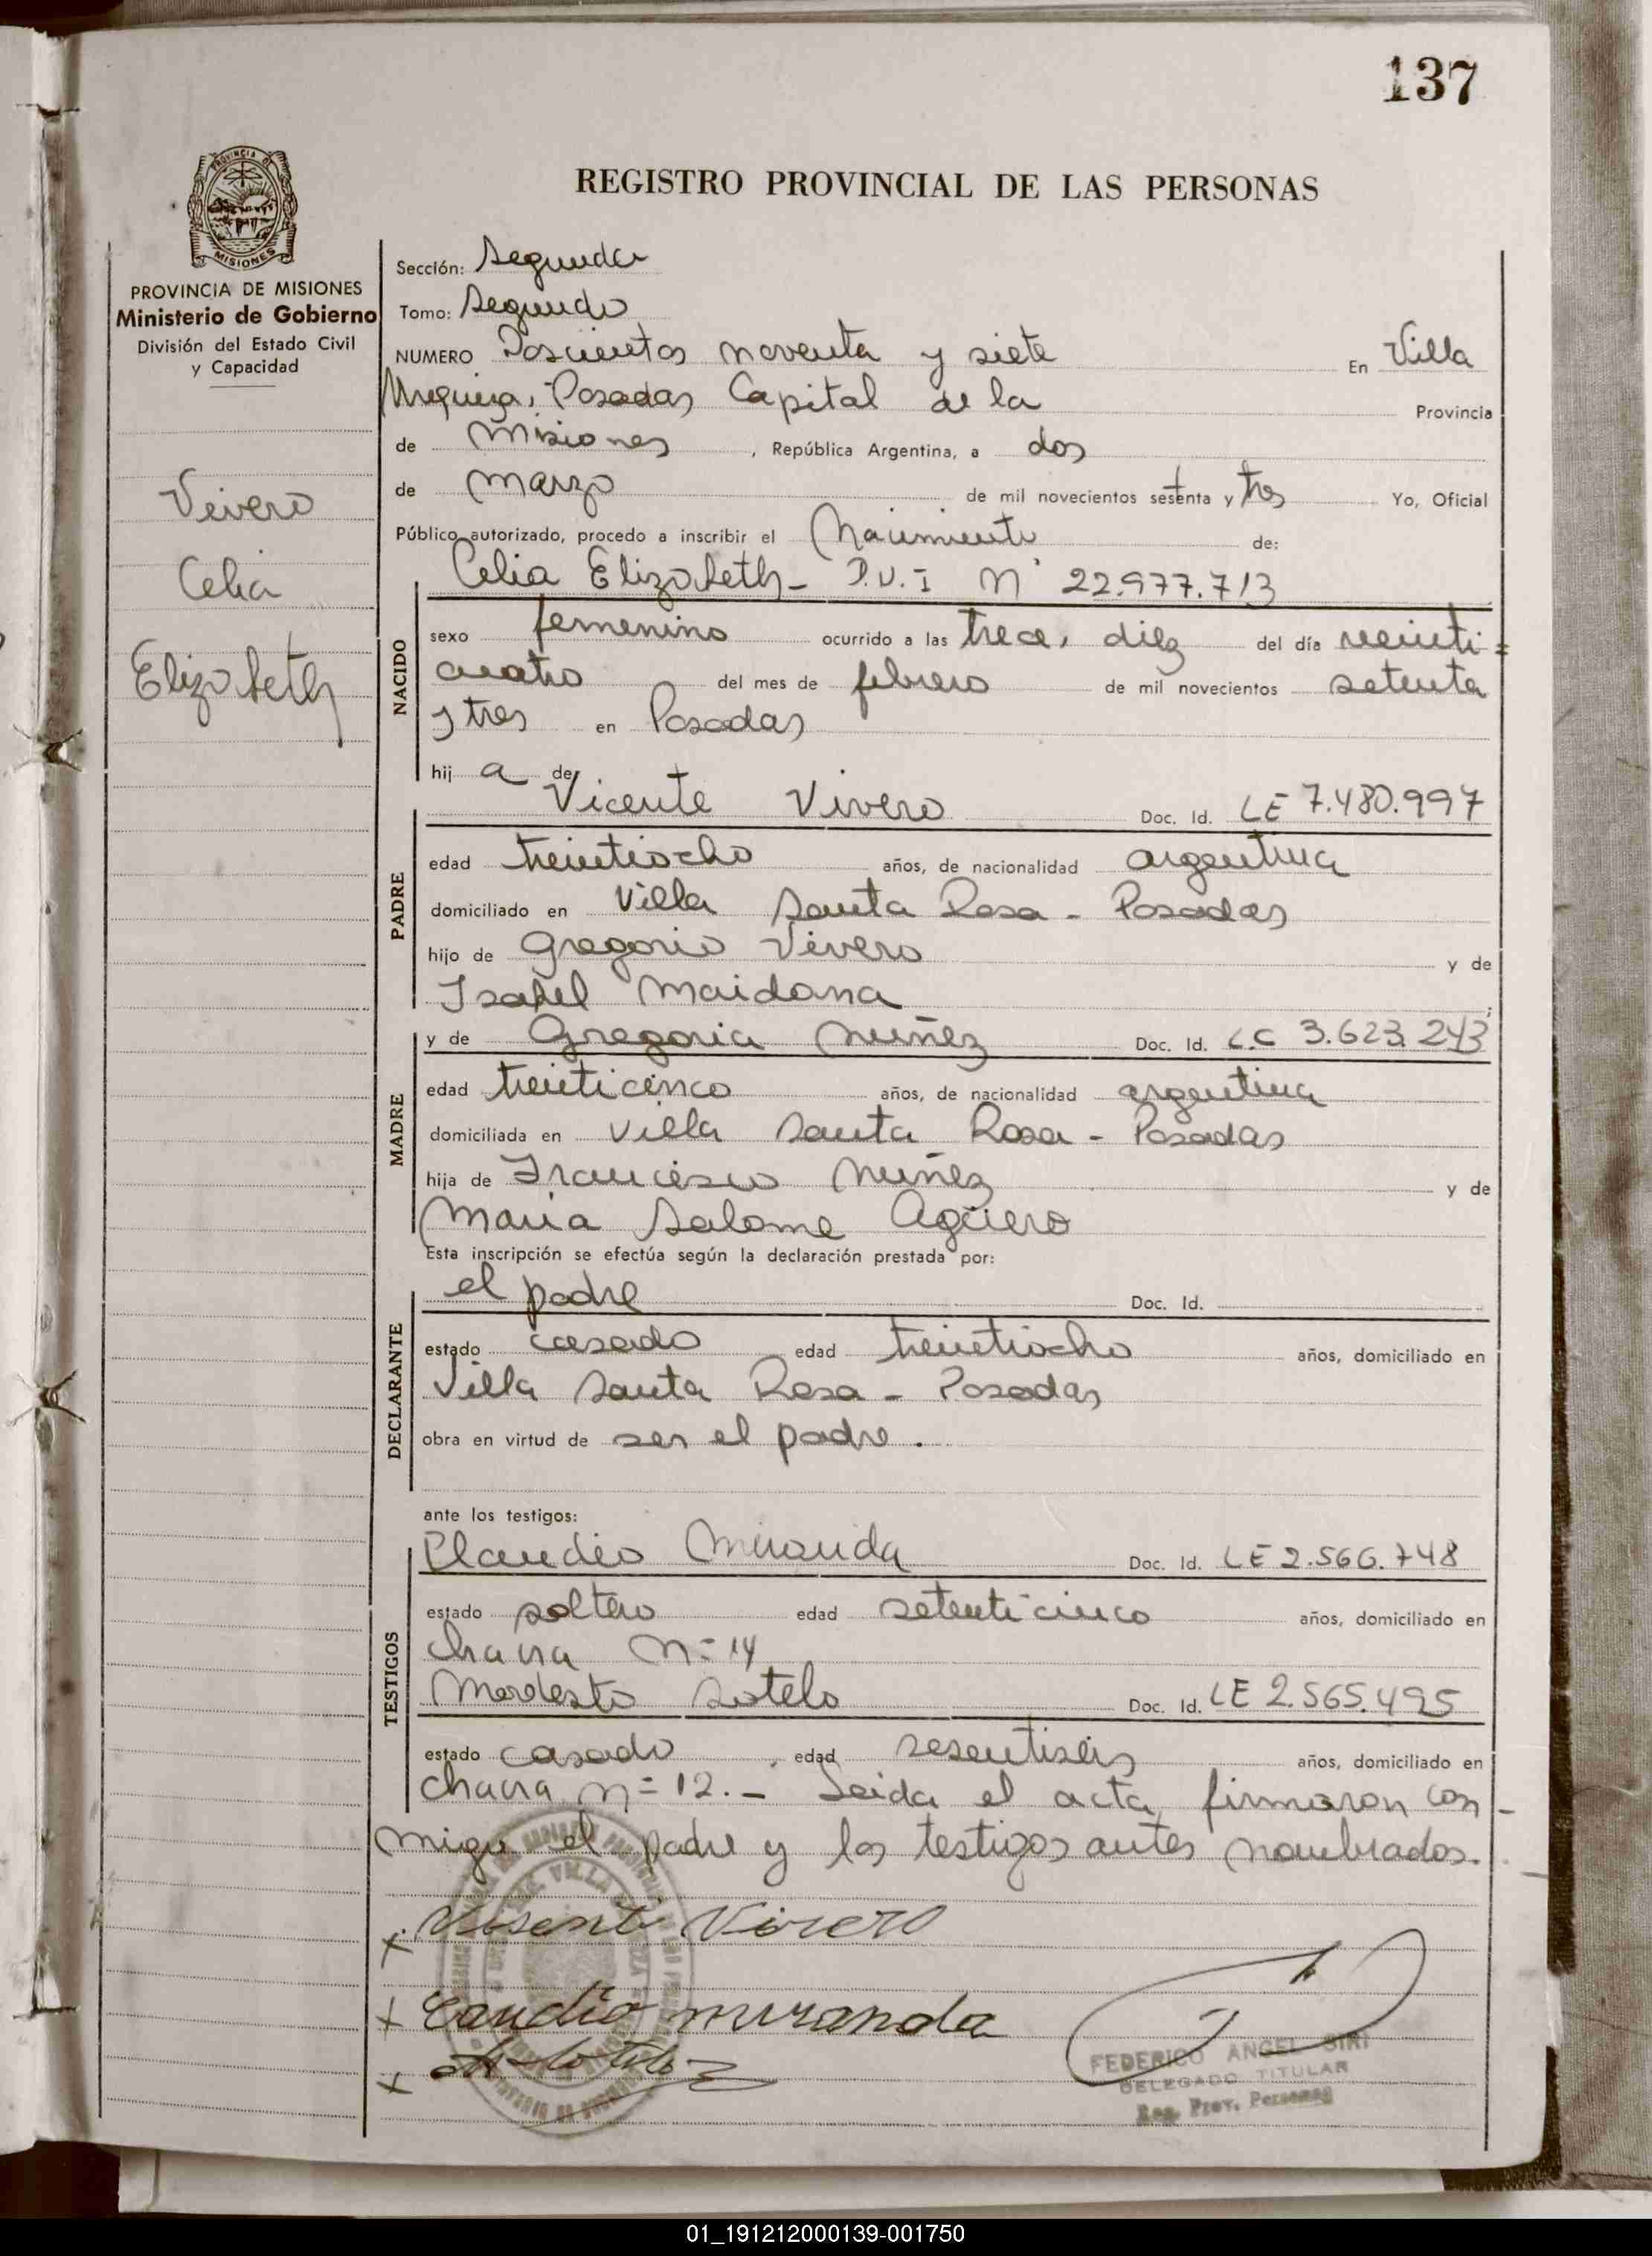 137
REGISTRO PROVINCIAL DE LAS PERSONAS
PROVINCIA DE MISIONES
Ministerio de Gobierno
División del Estado Civil
y Capacidad
Vivero
Celia
Elizabeth
Sección: Segunda
Tomo: Segundo
NUMERO Doscientos noventa y siete En Villa
Urquiza, Posadas Capital de la Provincia
de Misiones, República Argentina, a dos
de marzo de mil novecientos sesenta y tres Yo, Oficial
Público autorizado, procedo a inscribir el Nacimiento de:
Celia Elizabeth - D.U.I Nº 22.977.713
NACIDO
sexo femenino ocurrido a las trece, diez del día veinti=
cuatro del mes de febrero de mil novecientos setenta
y tres en Posadas
hija de
Vicente Vivero Doc. Id. LE 7.480.997
PADRE
edad treintiocho años, de nacionalidad argentina
domiciliado en Villa Santa Rosa - Posadas
hijo de Gregorio Vivero y de
Isabel Maidana
y de Gregoria Nuñez Doc. Id. L.C 3.623.243
MADRE
edad treinticinco años, de nacionalidad argentina
domiciliada en Villa Santa Rosa - Posadas
hija de Francisco Nuñez y de
Maria Salome Agüero
Esta inscripción se efectúa según la declaración prestada por:
el padre Doc. Id.
DECLARANTE
estado casado edad treintiocho años, domiciliado en
Villa Santa Rosa - Posadas
obra en virtud de ser el padre.
ante los testigos:
Claudio Miranda Doc. Id. LE 2.566.748
TESTIGOS
estado soltero edad setenticinco años, domiciliado en
chacra Nº 14
Modesto Sotelo Doc. Id. LE 2.565.495
estado casado edad sesentiseis años, domiciliado en
chacra Nº 12.- Leida el acta, firmaron con-
migo el padre y los testigos antes nombrados.
x Visente Vivero
x Caudio miranda
x
FEDERICO ANGEL SIRI
DELEGADO TITULAR
Reg. Prov. Personas
01_191212000139-001750